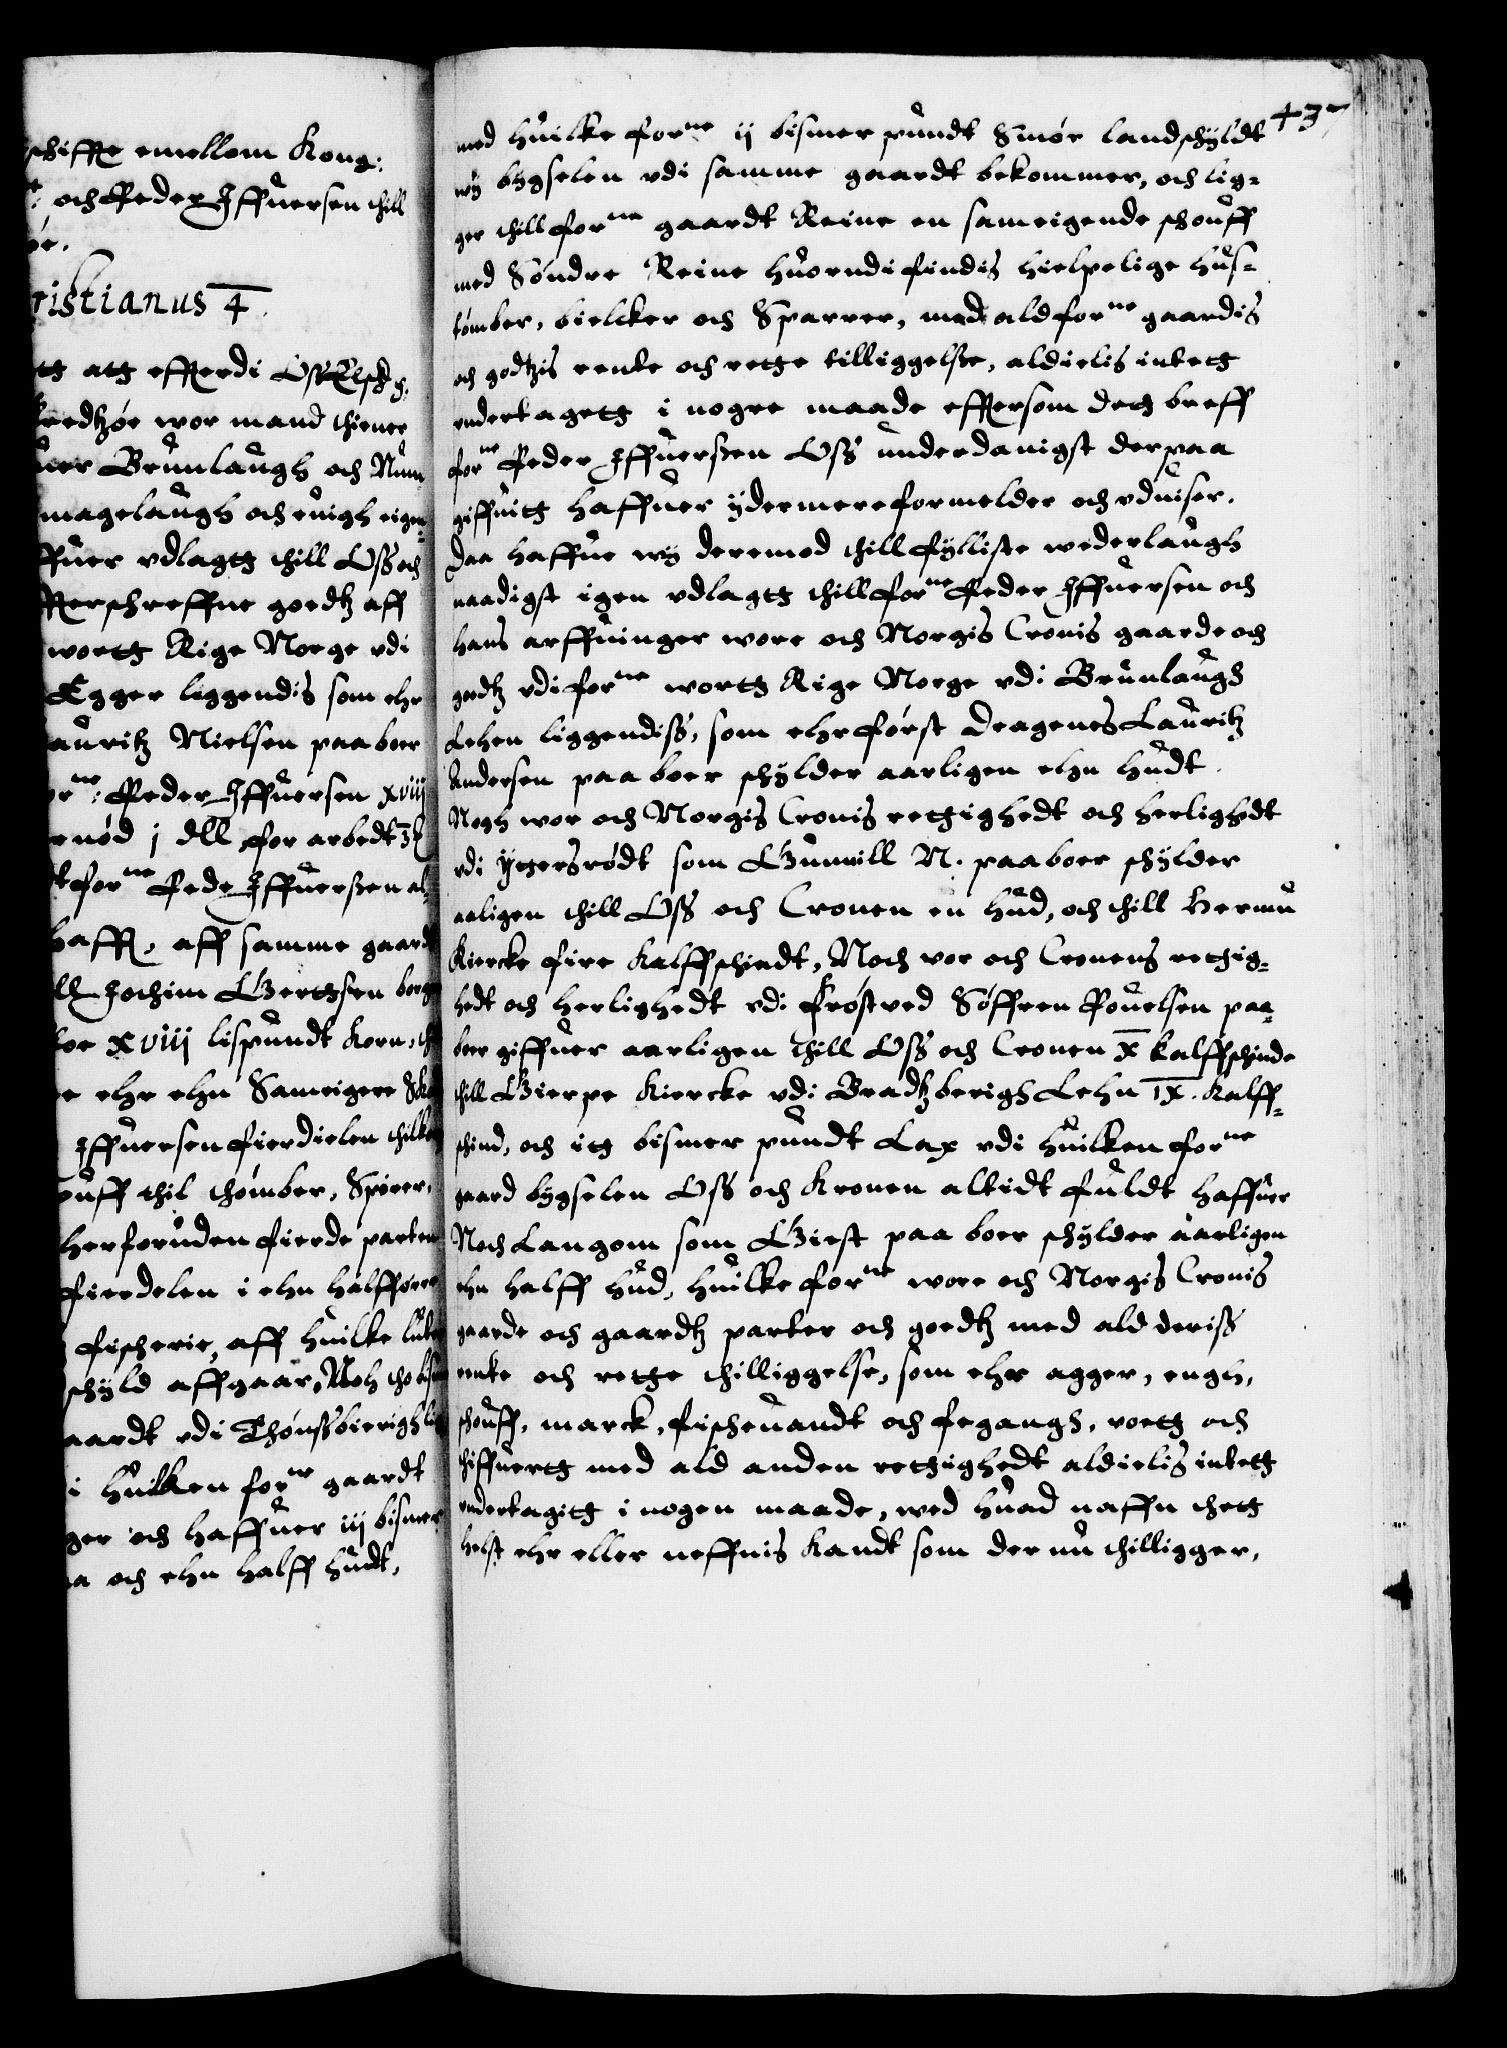 schiffte emellom Kong:
och Peder Iffuersen thill
ristianus 4.
atg effterdi Oss Elsch:
wor mand thiener
Brunlaugh och Num
magelaugh och euigh eigen=
ffuer vdlagtg thill Oss och
tterschreffne goedtz aff
wortg Rige Norge vdi
Egger liggendis som ehr
auritz Nielsen paa boer
orne: Peder Iffuersen xviij
nød j dll for arbedt
forne Peder Iffuerssen al
haff, aff samme gaard
Jochim Giertgsen borg
xviij lispundt Korn,
ehr ehn Sameigere
Iffuersen fierdielen
ouff thil thømber, Spirer,
herforuden fierde parten
fierdelen i ehn halff
fischerie, aff huilke
schyld affgaar, Noch tho
aardt vdi Thønssbierigh
i huilken forne gaardt
ger och haffuer iij bismer
och ehn halff hudt,
437
med huilke forne ij bismer pundt Smør landschyldt
wy bygselen vdi samme gaardt bekommer, och lig=
ger thill forne gaardt Reine en sameigende schouff
med Søndre Reine huorudi findis hielpelige hus=
tømber, bielcker och Sparrer, med ald forne gaardis
och godtzis rente och retge tilliggelsse, aldielis intetg
vndertagetg i nogre maade efftersom detg breff
forne Peder Iffuerssen Oss underdanigst derpaa
giffuitg haffuer ydermere formelder och vduiser.
Daa haffue wy deremod thill fylliste wederlaugh
naadigst igen vdlagtg thill forne Peder Iffuersen och
hans arffuinger wore och Norgis Cronis gaarde och
godtz vdi forne wortg Rige Norge vdi Brunlaugs
Lehen liggendiss, som ehr først Deagenes Lauritz
Andersen paa boer schylder aarligen ehn hudt.
Nogh wor och Norgis Cronis retgighedt och herlighedt
vdi Ytgersrødt som Gunuill N. paaboer schylder
aaligen thill Oss och Cronen en hud, och thill Hermu
Kiercke fire Kalffschindt, Noch vor och Cronens retgig=
hedt och herlighedt vdi Frøstved Søffren Pouelsen paa=
boer giffuer aarligen thill Oss och Cronen x kalffschinde
thill Gierpe Kiercke vdi Bradtzberigh Lehn ix. Kalff=
schind, och itg bismer pundt Lax vdi huilken forne
gaard bygselen Oss och Kronen altidt fuldt haffuer
Noch Langom som Giest paa boer schylder aarligen
ehn halff hud, huilke forne wore och Norgis Cronis
gaarde och gaardtz parter och goedtz med ald deriss
rente och retge thilliggelse, som ehr agger, engh,
schouff, marck, fischeuandt och fegangh, voetg och
thiffuertg med ald anden retgighedt aldielis intetg
vndertagitg i nogen maade, wed huad naffn thetg
helst ehr eller neffnis Kandt som der nu thilligger,